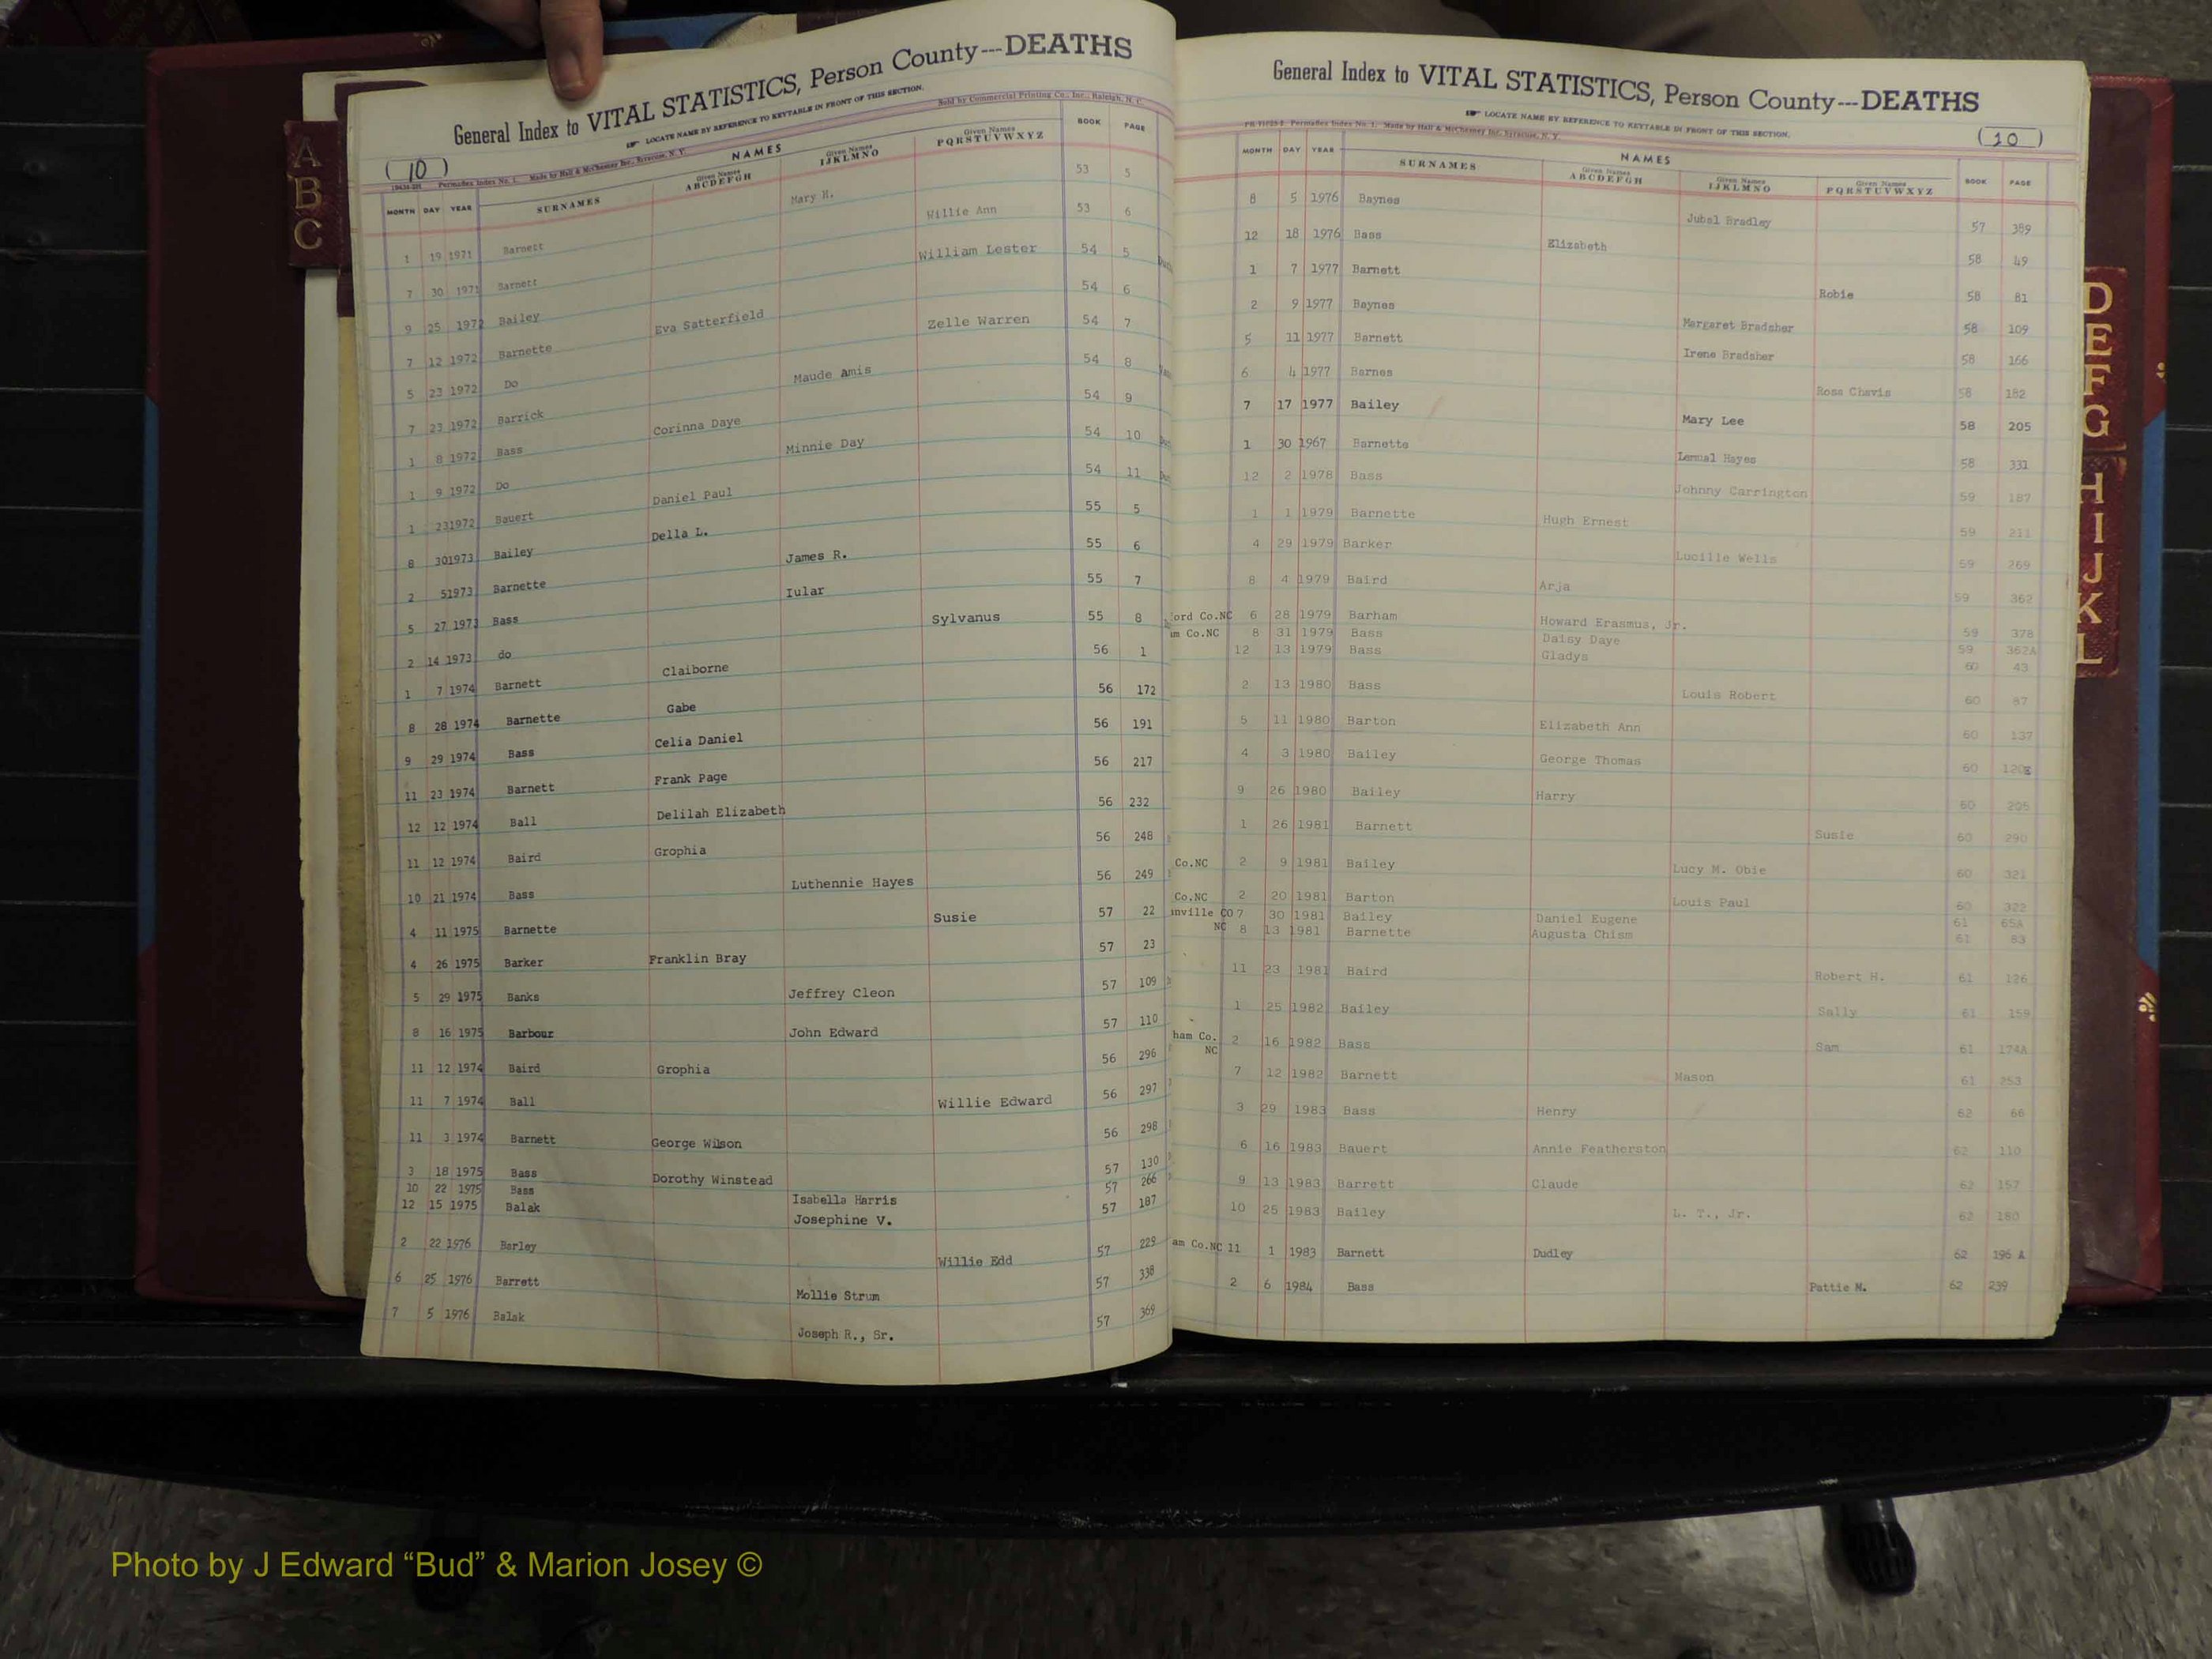 General Index to VITAL STATISTICS, Person County---DEATHS
LOCATE NAME BY REFERENCE TO KEYTABLE IN FRONT OF THIS SECTION.
Sold by Commercial Printing Co., Inc., Raleigh, N. C.
(10)
Permaflex Index No. 1. Made by Hall & McChesney Inc. Syracuse, N. Y.
NAMES
MONTH DAY YEAR SURNAMES Given Names ABCDEFGH Given Names IJKLMNO Given Names PQRSTUVWXYZ BOOK PAGE
1 19 1971 Barnett Mary H. 53 5
7 30 1971 Barnett Willie Ann 53 6
9 25 1972 Bailey William Lester 54 5
7 12 1972 Barnette Eva Satterfield 54 6
5 23 1972 Do Zelle Warren 54 7
7 23 1972 Barrick Maude amis 54 8
1 8 1972 Bass Corinna Daye 54 9
1 9 1972 Do Minnie Day 54 10
1 231972 Bauert Daniel Paul 54 11
8 301973 Bailey Della L. 55 5
2 51973 Barnette James R. 55 6
5 27 1973 Bass Iular 55 7
2 14 1973 do Sylvanus 55 8
1 7 1974 Barnett Claiborne 56 1
8 28 1974 Barnette Gabe 56 172
9 29 1974 Bass Celia Daniel 56 191
11 23 1974 Barnett Frank Page 56 217
12 12 1974 Ball Delilah Elizabeth 56 232
11 12 1974 Baird Grophia 56 248
10 21 1974 Bass Luthennie Hayes 56 249
4 11 1975 Barnette Susie 57 22
4 26 1975 Barker Franklin Bray 57 23
5 29 1975 Banks Jeffrey Cleon 57 109
8 16 1975 Barbour John Edward 57 110
11 12 1974 Baird Grophia 56 296
11 7 1974 Ball Willie Edward 56 297
11 3 1974 Barnett George Wilson 56 298
3 18 1975 Bass Dorothy Winstead 57 130
10 22 1975 Bass Isabella Harris 57 266
12 15 1975 Balak Josephine V. 57 187
2 22 1976 Barley Willie Edd 57 229
6 25 1976 Barrett Mollie Strum 57 338
7 5 1976 Balak Joseph R., Sr. 57 369
General Index to VITAL STATISTICS, Person County---DEATHS
LOCATE NAME BY REFERENCE TO KEYTABLE IN FRONT OF THIS SECTION.
(10)
Permaflex Index No. 1. Made by Hall & McChesney Inc. Syracuse, N. Y.
NAMES
MONTH DAY YEAR SURNAMES Given Names ABCDEFGH Given Names IJKLMNO Given Names PQRSTUVWXYZ BOOK PAGE
8 5 1976 Baynes Jubal Bradley 57 389
12 18 1976 Bass Elizabeth 58 49
1 7 1977 Barnett Robie 58 81
2 9 1977 Baynes Margaret Bradsher 58 109
5 11 1977 Barnett Irene Bradsher 58 166
6 4 1977 Barnes Rosa Chavis 58 182
7 17 1977 Bailey Mary Lee 58 205
1 30 1967 Barnette Lemual Hayes 58 331
12 2 1978 Bass Johnny Carrington 59 187
1 1 1979 Barnette Hugh Ernest 59 211
4 29 1979 Barker Lucille Wells 59 269
8 4 1979 Baird Arja 59 362
ord Co.NC 6 28 1979 Barham Howard Erasmus, Jr. 59 378
am Co.NC 8 31 1979 Bass Daisy Daye 59 362A
12 13 1979 Bass Gladys 60 43
2 13 1980 Bass Louis Robert 60 87
5 11 1980 Barton Elizabeth Ann 60 137
4 3 1980 Bailey George Thomas 60
9 26 1980 Bailey Harry 60 205
1 26 1981 Barnett Susie 60 290
Co.NC 2 9 1981 Bailey Lucy M. Obie 60 321
Co.NC 2 20 1981 Barton Louis Paul 60 322
nville CO 7 30 1981 Bailey Daniel Eugene 61 65A
NC 8 13 1981 Barnette Augusta Chism 61 83
11 23 1981 Baird Robert H. 61 126
1 25 1982 Bailey Sally 61 159
ham Co. NC 2 16 1982 Bass Sam 61 174A
7 12 1982 Barnett Mason 61 253
3 29 1983 Bass Henry 62 66
6 16 1983 Bauert Annie Featherston 62 110
9 13 1983 Barrett Claude 62 157
10 25 1983 Bailey L. T., Jr. 62 180
am Co.NC 11 1 1983 Barnett Dudley 62 196 A
2 6 1984 Bass Pattie M. 62 239
A
B
C
D
E
F
G
H
I
J
K
L
Photo by J Edward “Bud” & Marion Josey ©